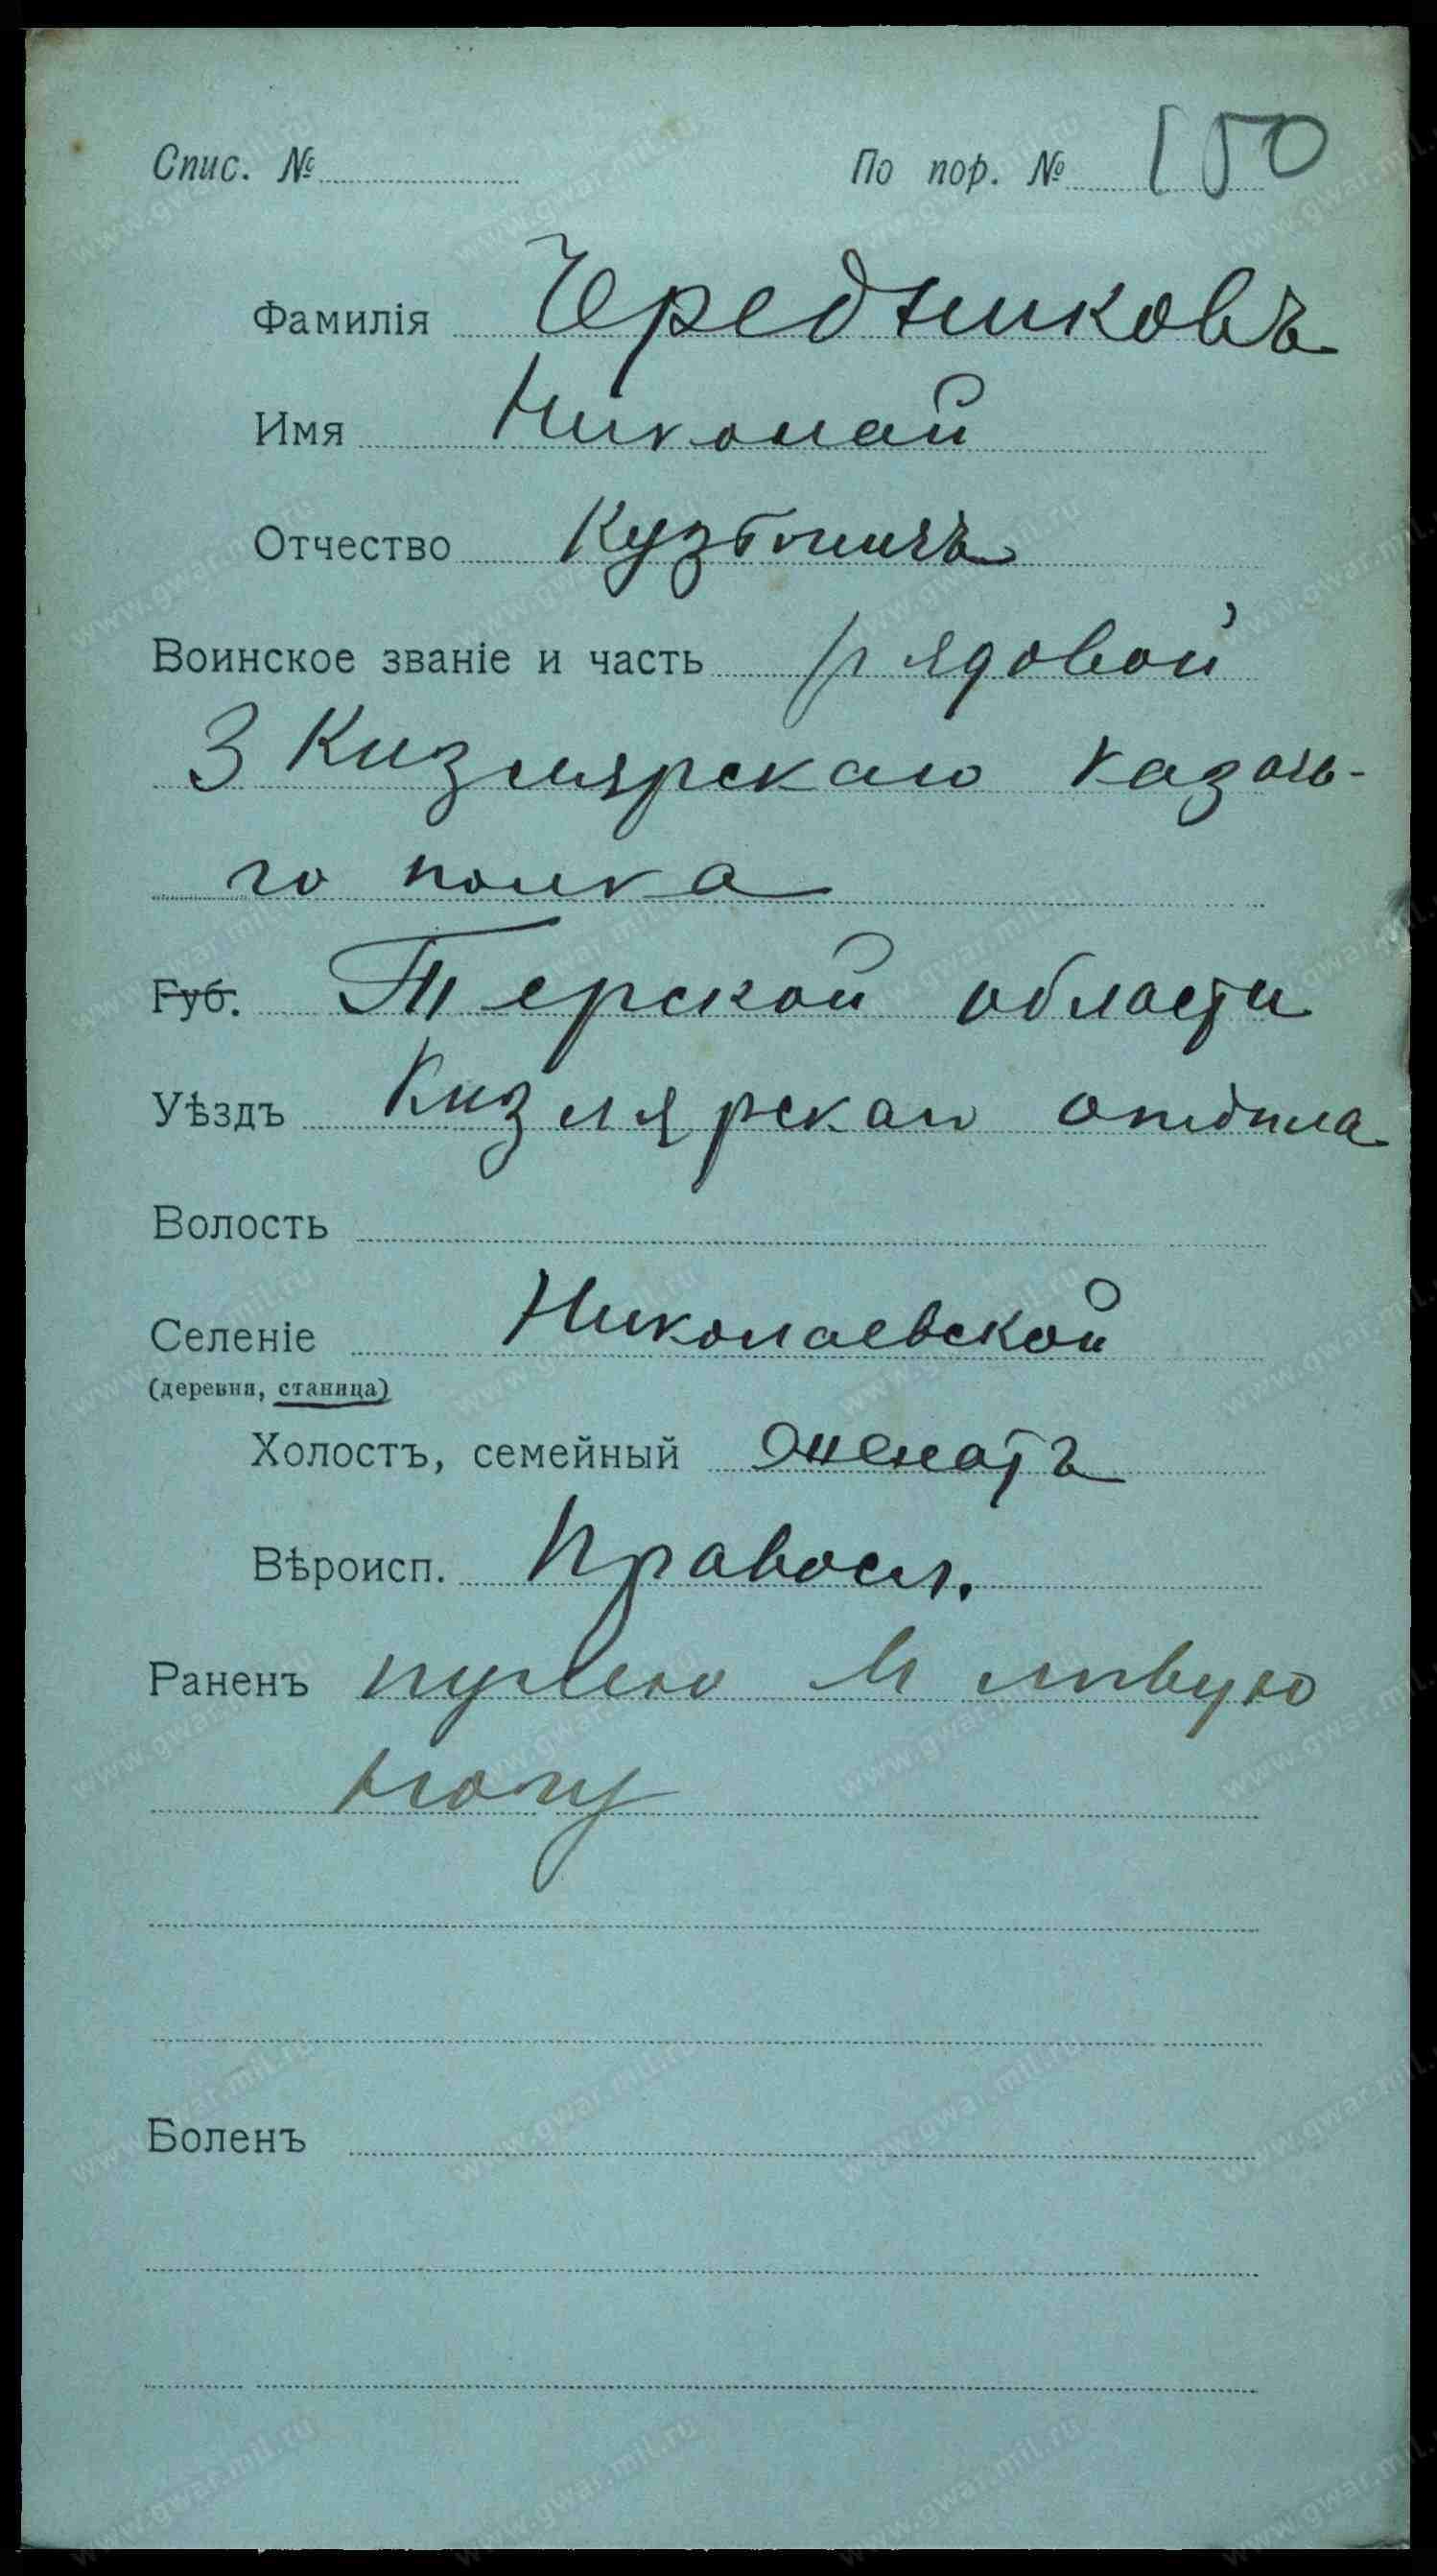 Спис. № По пор. № 150
Фамилія Чередниковъ
Имя Николай
Отчество Кузьмичъ
Воинское званіе и часть рядовой
3 Кизлярскаго казачь-
го полка
Губ. Терской области
Уѣздъ Кизлярскаго отдѣла
Волость
Селеніе Николаевской
(деревня, станица)
Холостъ, семейный женатъ
Вѣроисп. Правосл.
Раненъ пулею въ лѣвую
ногу
Боленъ